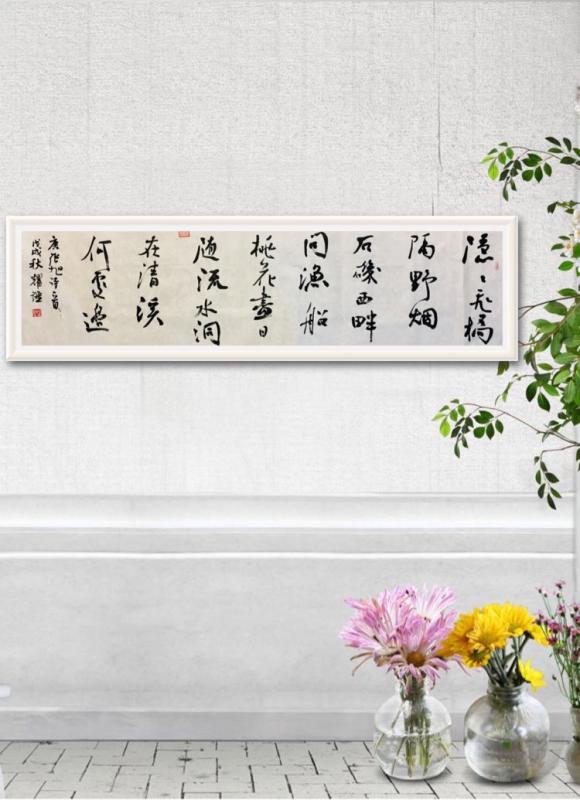 隱〻飛橋
隔野烟
石磯西畔
問漁船
桃花盡日
随流水洞
在清溪
何處邊
唐張旭詩
戊戌秋